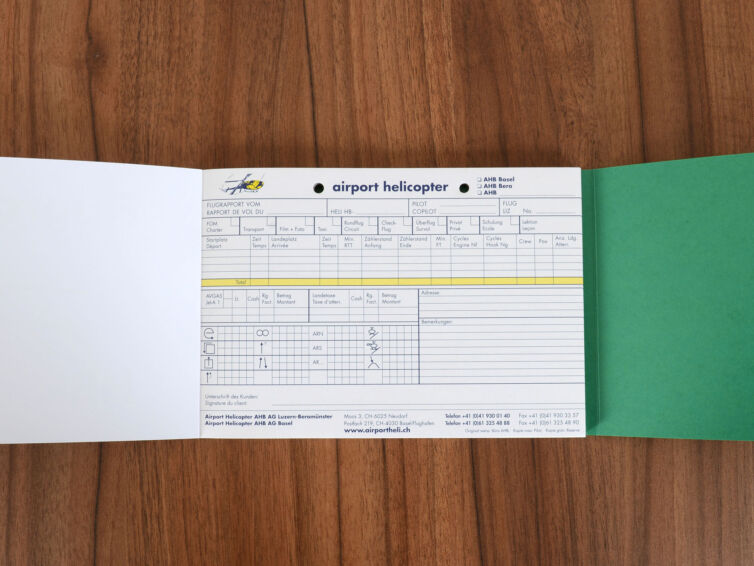 airport helicopter
AHB Basel
AHB Bero
AHB
FLUGRAPPORT VOM
RAPPORT DE VOL DU
HELI HB-
PILOT
COPILOT
FLUG
LIZ No.
FOM Charter Transport Film + Foto Taxi Rundflug Circuit Check-Flug Überflug Survol Privat Privé Schulung Ecole Lektion Leçon
Startplatz Zeit Landeplatz Zeit Min. Zählerstand Zählerstand Min. Cycles Cycles Crew Pax Anz. Ldg.
Départ Temps Arrivée Temps RTT Anfang Ende FT Engine Nf Hook Ng Atterr.
Total
AVGAS Lt. Cash Rg. Betrag Landetaxe Cash Rg. Betrag
Jet-A 1 Fact. Montant Taxe d'atterr. Fact. Montant
Adresse:
Bemerkungen:
ARN
ARS
AR
Unterschrift des Kunden:
Signature du client:
Airport Helicopter AHB AG Luzern-Beromünster Moos 3, CH-6025 Neudorf Telefon +41 (0)41 930 01 40 Fax +41 (0)41 930 33 57
Airport Helicopter AHB AG Basel Postfach 219, CH-4030 Basel/Flughafen Telefon +41 (0)61 325 48 88 Fax +41 (0)61 325 48 90
www.airportheli.ch Original weiss: Büro AHB, Kopie rosa: Pilot, Kopie grün: Reserve